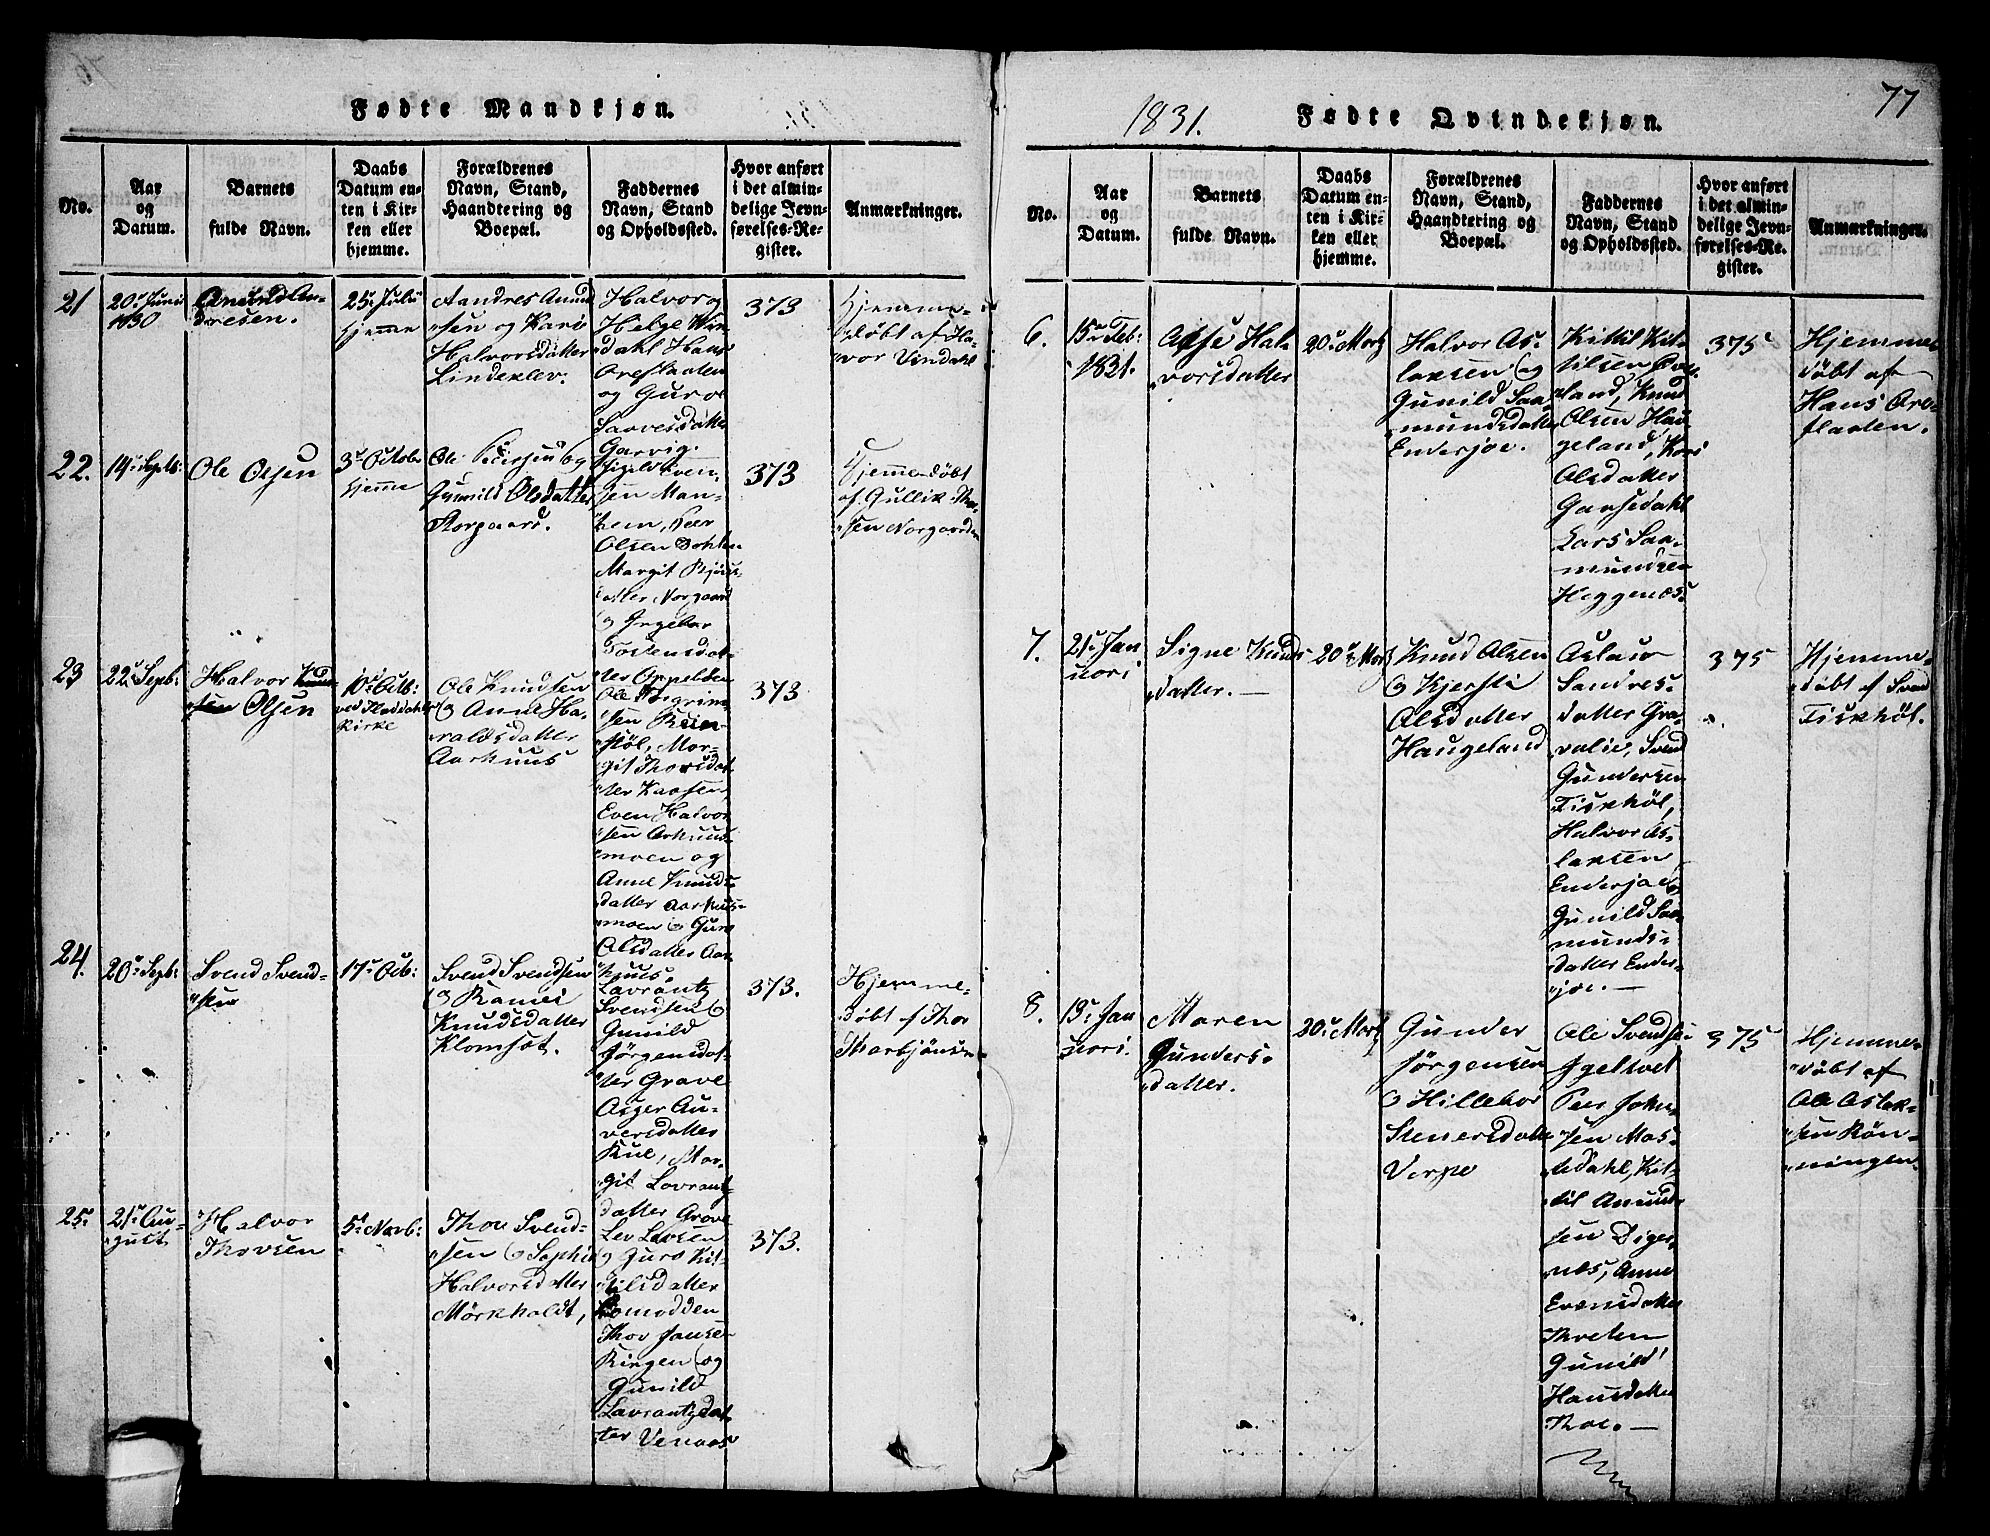 Fødte Mandkjøn.
No.
Aar
og
Datum.
Barnets
fulde Navn.
Daabs
Datum en-
ten i Kir-
ken eller
hjemme.
Forældrenes
Navn, Stand,
Haandtering og
Boepæl.
Faddernes
Navn, Stand
og Opholdssted.
Hvor anført
i det almin-
delige Jevn-
førelses-Re-
gister.
Anmærkninger.
21
20de Juni
1830
Amund An-
dresen.
25de Julii
hjemme
Aandres Amund
sen og Kari
Halvorsdatter
Lindeklev.
Halvor og
Helge Vin-
dahl Hans
Oreflaaten
og Guroe
Sarvesdatter
Garvig.
373
Hjemme-
døbt af Ha-
vor Vindahl
22.
14de Septb:
Ole Olsen
3de Octobr
hjemme
Ole Pedersen og
Gunild Olsdatter
Norgaard.
Even-
sen Man-
hem, Peer
Olsen Dohlen
Margit Kjøns-
datter Norgaard
og Ingebor
Tovensdat-
ter Oppebøen
373
Hjemmedøbt
af Gullik Tho-
sen Norgaarden
23
22de Septb:
Halvor Knud
sen Olsen
10de Octb:
ved Fladdahls
Kirke
Ole Knudsen
og Anne Ha-
raldsdatter
Aarhuus
Ole Torgrim-
sen Ruen-
støl, Mar-
git Thorsdat
ter Kaasen,
Even Halvor
sen Arhuus-
moen og
Anne Knuds-
datter Aarhuus-
moen og Guro
Olsdatter Aar
huus.
373
24.
20de Septb:
Svend Svend-
sen
17de Octb:
Svend Svendsen
og Ramei
Knudsdatter
Klomset.
Lavrantz
Svendsen og
Gunild
Jørgensdat-
ter Grave
Asger Au-
versdatter
Kile, Mar-
git Lavrantz
datter Grove
373.
Hjemme-
døbt af Thor
Thorbjönsen
25.
21de Au-
gust
Halvor
Thovsen
5te Novb:
Thov Svend-
sen og Sophie
Halvorsdatter
Mørkholdt,
Lev Levsen
og Juro Kit-
tilsdatter
Romodden
Thov Jansen
Ringen og
Gunild
Lavrantzdat
ter Venaas
373.
1831.
Fødte Qvindekjøn.
77
No.
Aar
og
Datum.
Barnets
fulde Navn.
Daabs
Datum en-
ten i Kir-
ken eller
hjemme.
Forældrenes
Navn, Stand,
Haandtering og
Boepæl.
Faddernes
Navn, Stand
og Opholdssted.
Hvor anført
i det almin-
delige Jevn-
førelses-Re-
gister.
Anmærkninger.
6.
15de Feb:
1831.
Aase Hal-
vorsdatter
20de Martz
Halvor As-
laksen og
Gunild Saa-
mundsdatter
Enderjoe.
Kittil Kit-
tilsen
land, Knud
Olsen Hau-
geland, Kari
Olsdatter
Gaasedahl
Lars Saa-
mundsen
Heggenæs.
375
Hjemme
døbt af
Hans Ore-
flaaten.
7.
21de Jan
uari
Signe Knuds
datter.
20de Martz
Knud Olsen
og Kjersti
Olsdatter
Haugeland
Aslaug
Sandres-
datter Gra-
valie, Svend
Gundersen
Tiskhöl,
Halvor As-
laksen
Enderjoe og
Gunild Saa-
munds-
datter Ender-
joe.
375
Hjemme-
døbt af Svend
Tiskhöl.
8.
13de Jan
uari.
Maren
Gunders-
datter.
20de Martz
Gunder
Jørgensen
og Hillebor
Stenersdatter
Verpe
Ole Svendsen
Igeltvet
Peer John-
sen Mos-
edahl, Kit-
til Amund-
sen Diger-
næs, Anne
Evensdatter
Throlen
Gunild
Hansdatter
Thoe.
375
Hjemme-
døbt af
Ole Aslak-
sen Rön-
ningen.